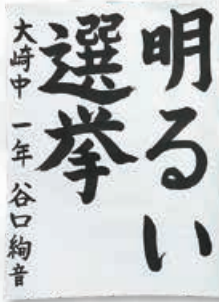 明るい
選挙
大崎中 一年 谷口絢音